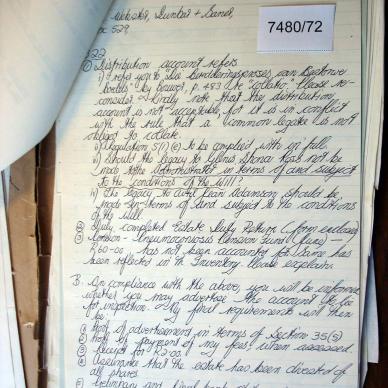 7480/72
Webster, Dunbar + Sand,
529
① Distribution account refers
i) I refer you to the
p. 483 to "collatio". Please re-
consider. Kindly note that the distribution
account is not acceptable, for it is in conflict
with the rule that a common legatee is not
obliged to collate.
ii) Regulation 5(1)(e) to be complied with in full.
iii) Should the legacy to has not be
made to the Administrator in terms of and subject
to the conditions of the will?
iv) The legacy to Adamson should be
made in terms of and subject to the conditions
of the will.
② Duly completed Estate Duty Return (form enclosed
③ Pneumoconiosis Pension Fund
R60-00 has not been accounted for
been reflected in the Inventory. Please explain.
B. On compliance with the above you will be informed
whether you may advertise the account to lie
for inspection. My final requirements will then
be
① Proof of advertisement in terms of Section 35(5)
② Proof of payment of my fees, when assessed.
③ Receipt for R200
④ Assurance that the estate has been divested of
all shares.